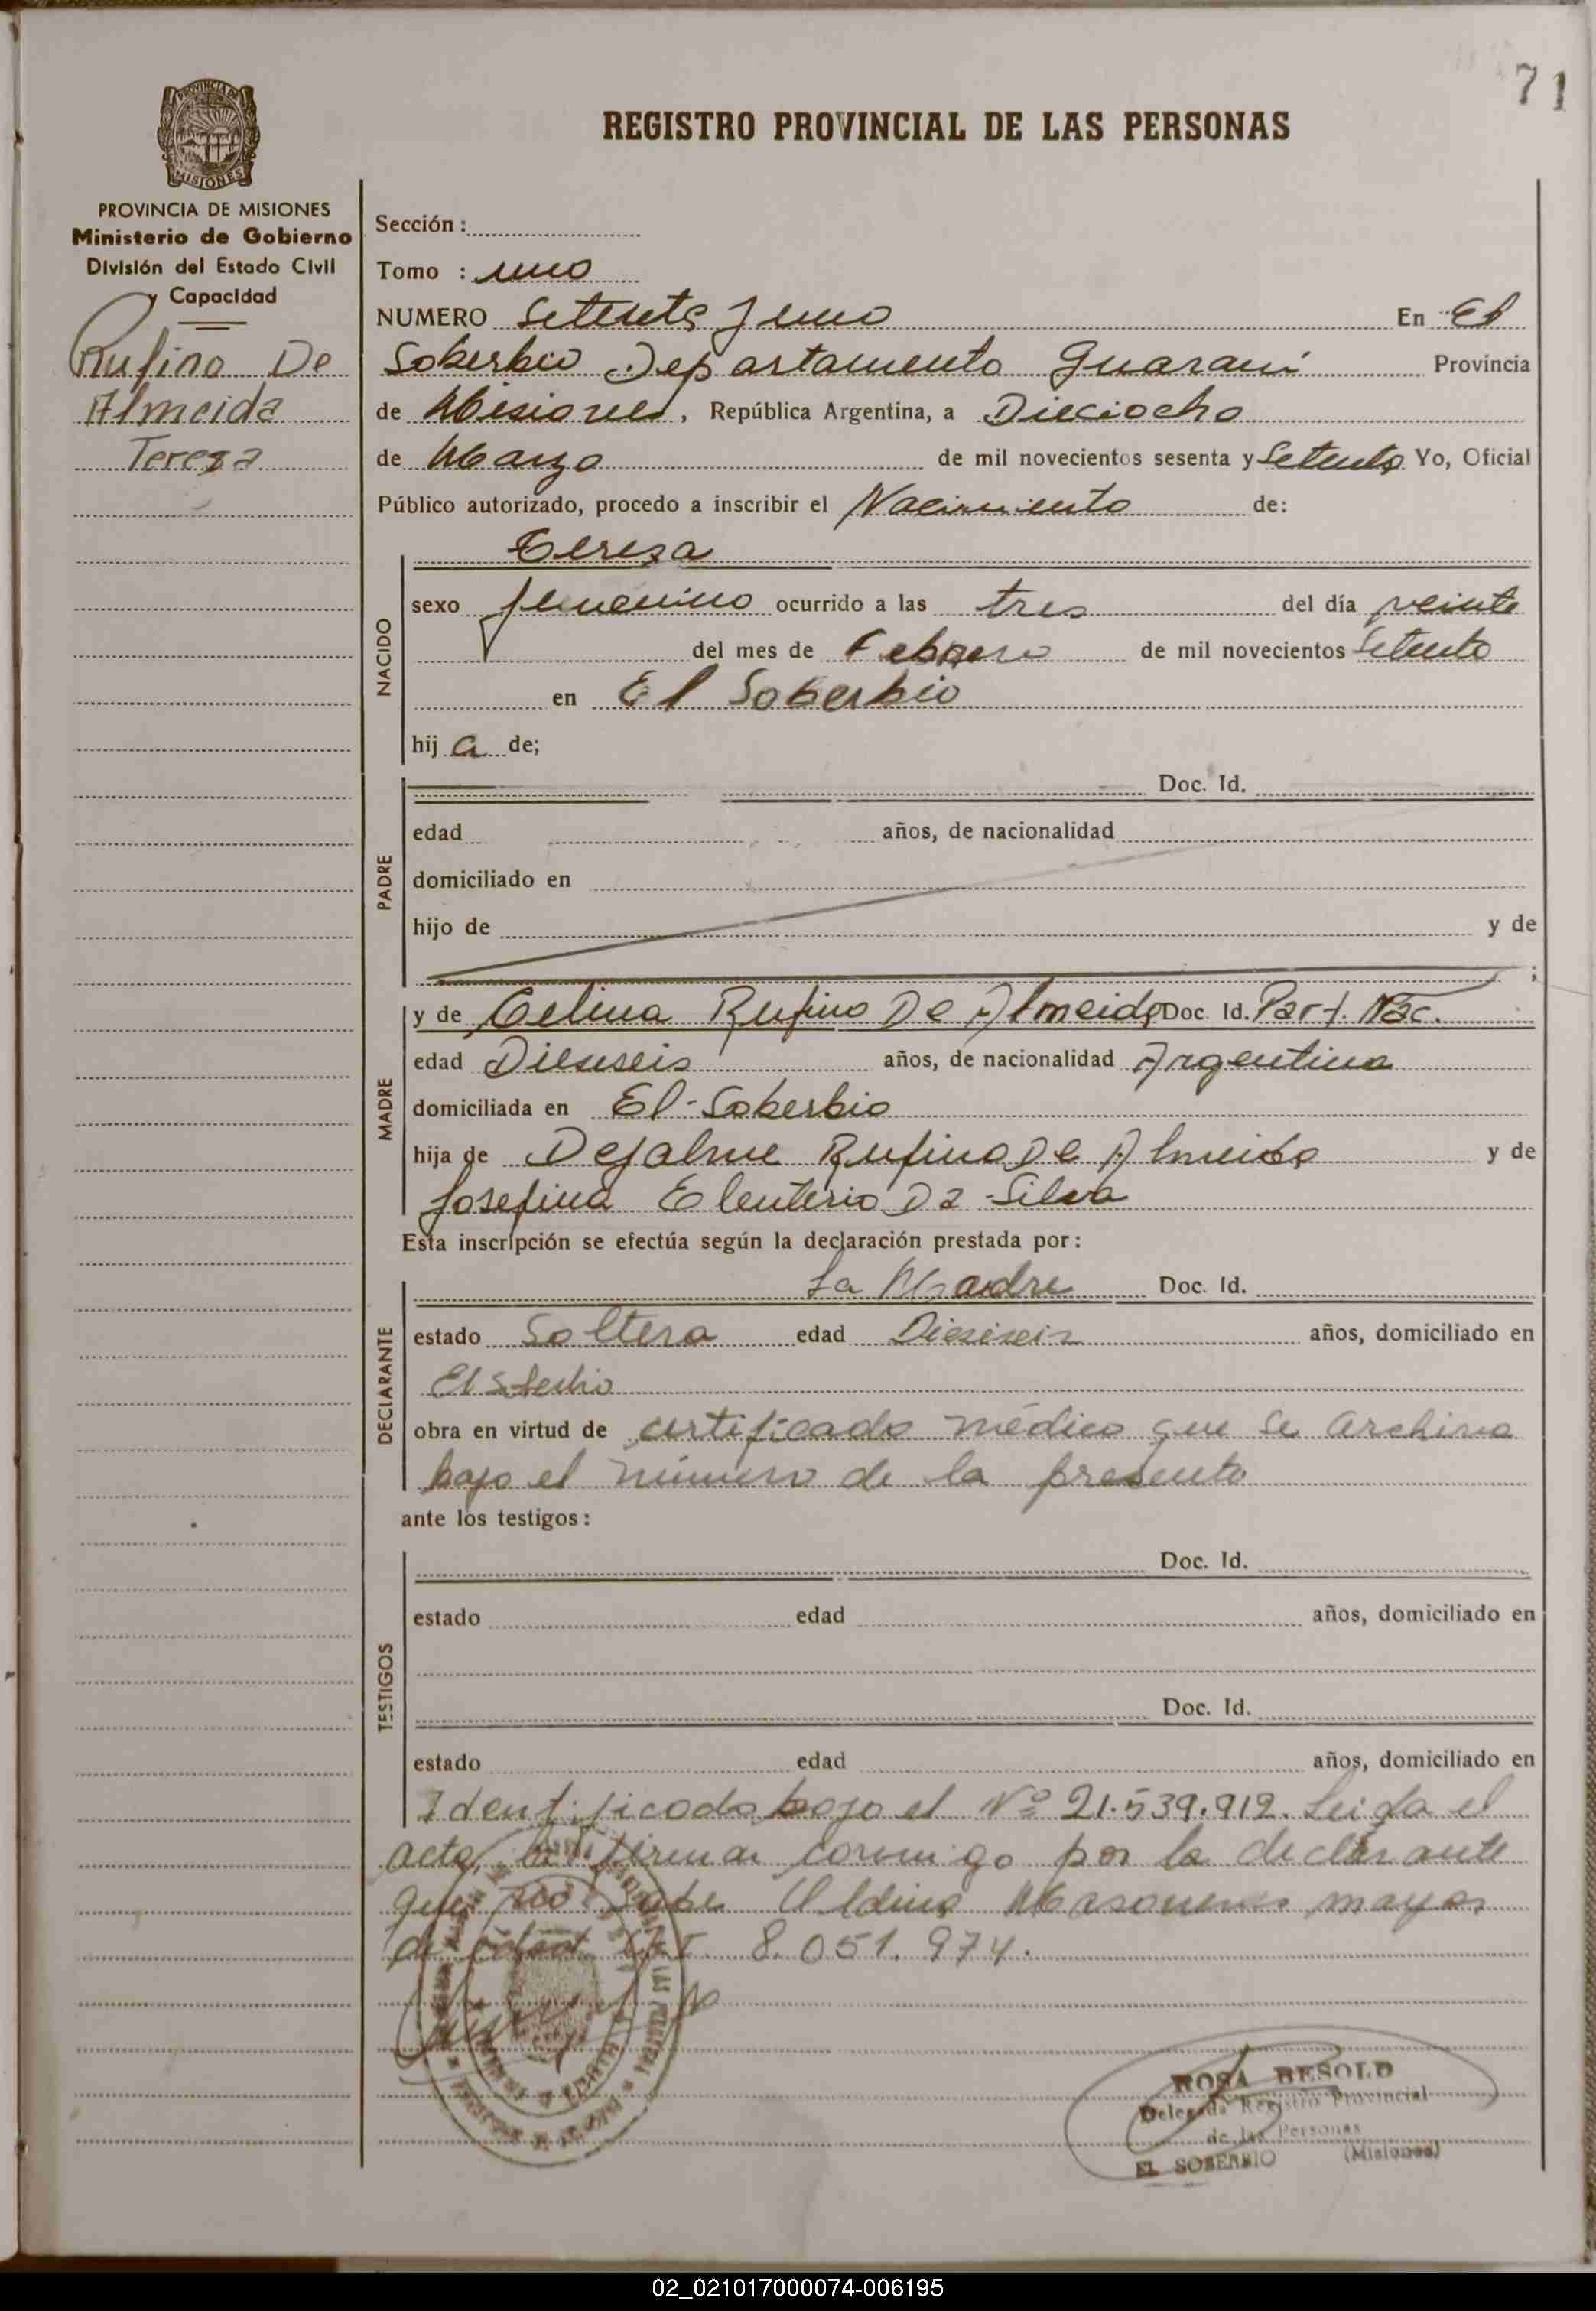 71
PROVINCIA DE MISIONES
REGISTRO PROVINCIAL DE LAS PERSONAS
PROVINCIA DE MISIONES
Ministerio de Gobierno
División del Estado Civil
y Capacidad
Rufino De
Almeida
Teresa
Sección:
Tomo : uno
NUMERO Setenta y uno En El
Soberbio Departamento Guaraní Provincia
de Misiones, República Argentina, a Dieciocho
de Marzo de mil novecientos sesenta y Setenta Yo, Oficial
Público autorizado, procedo a inscribir el Nacimiento de:
NACIDO
Teresa
sexo femenino ocurrido a las tres del día veinte
del mes de Febrero de mil novecientos Setenta
en El Soberbio
hij a de;
PADRE
Doc. Id.
edad años, de nacionalidad
domiciliado en
hijo de y de
;
MADRE
y de Celina Rufino De Almeida Doc. Id. Part. Nac.
edad Dieseseis años, de nacionalidad Argentina
domiciliada en El-Soberbio
hija de Dejalme Rufino De Almeida y de
Josefina Eleuterio Da Silva
Esta inscripción se efectúa según la declaración prestada por:
DECLARANTE
La Madre Doc. Id.
estado Soltera edad Dieseseis años, domiciliado en
El Soberbio
obra en virtud de certificado médico que se archiva
bajo el número de la presente
ante los testigos:
TESTIGOS
Doc. Id.
estado edad años, domiciliado en
Doc. Id.
estado edad años, domiciliado en
Identificada bajo el Nº 21.539.919. Leida el
acta, firma conmigo por la declarante
que no sabe mayor
de edad 8.051.974.
ROSA BESOLD
Delegada Registro Provincial
de las Personas
EL SOBERBIO (Misiones)
02_021017000074-006195